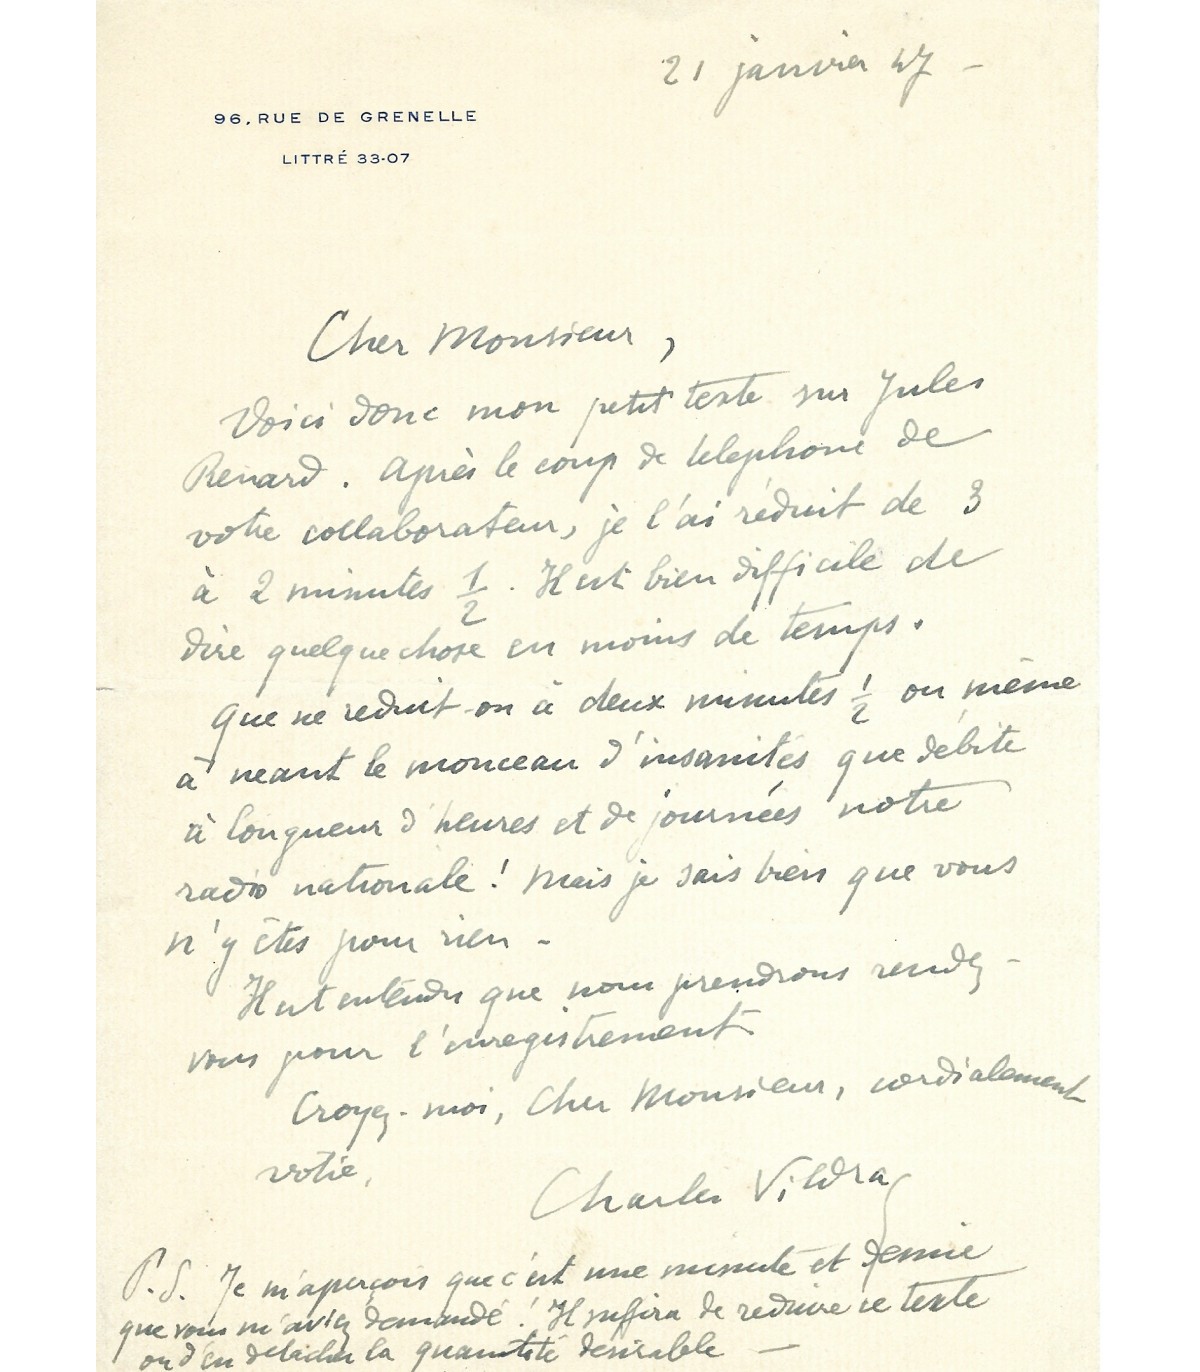 21 janvier 47 -
96, RUE DE GRENELLE
LITTRÉ 33-07
Cher Monsieur,
Voici donc mon petit texte sur Jules
Renard. Après le coup de telephone de
votre collaborateur, je l'ai réduit de 3
à 2 minutes 1/2. Il est bien difficile de
dire quelquechose en moins de temps.
Que ne reduit-on à deux minutes 1/2 ou même
à neant le monceau d'insanités que débite
à longueur d'heures et de journées notre
radio nationale ! Mais je sais bien que vous
n'y êtes pour rien -
Il est entendu que nous prendrons rendez-
vous pour l'enregistrement.
Croyez-moi, Cher Monsieur, cordialement
votre,
Charles Vildrac
P.S. Je m'aperçois que c'est une minute et demie
que vous m'aviez demandé ! Il suffira de reduire ce texte
ou d'en détacher la quantité désirable -